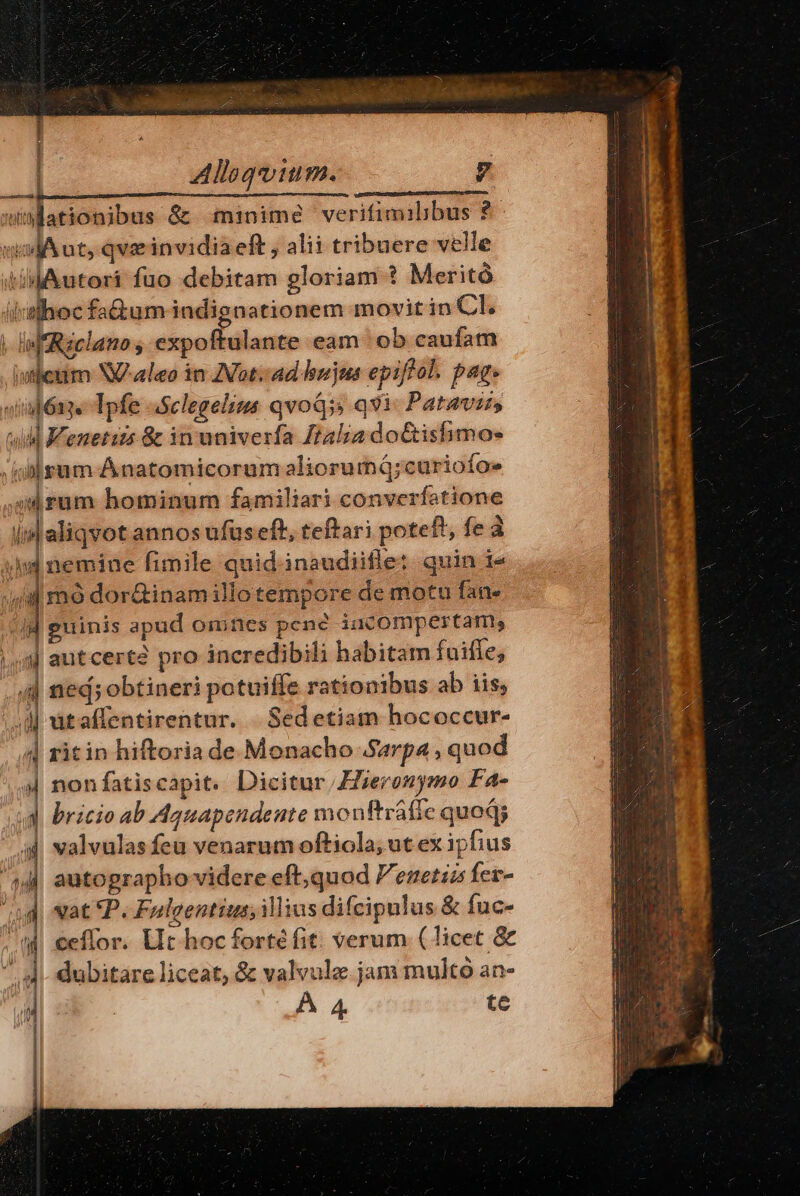 Alloqvium. 7
lationibus & minimè verisimilibus ?
Aut, qvæ invidia eſt, alii tribuere velle
Autori ſuo debitam gloriam ? Meritò
hoc factum indignationem movit in Cl.
Riolano, expoſtulante eam ob cauſam
cum VValæo in Not. ad hujus epiſtol. pag.
613. Ipſe Sclegelius qvoq; qvi Patavii,
Venetiis & in univerſa Italia doctisſimo-
rum Anatomicorum aliorumq; curioſo-
rum hominum familiari converſatione
aliqvot annos uſus eſt, teſtari poteſt, ſe à
nemine ſimile quid inaudiiſſe: quin i-
mò doctrinam illo tempore de motu ſan-
guinis apud omnes penè incompertam,
aut certè pro incredibili habitam fuiſſe,
neq; obtineri potuiſſe rationibus ab iis,
ut aſſentirentur. Sed etiam hoc occur-
rit in hiſtoria de Monacho Sarpa, quod
non ſatis capit. Dicitur Hieronymo Fa-
bricio ab Aquapendente monſtràſſe quoq;
valvulas ſeu venarum oſtiola, ut ex ipſius
autographo videre eſt, quod Venetiis ſer-
vat P. Fulgentius, illius diſcipulus & ſuc-
ceſſor. Ut hoc fortè ſit verum (licet &
dubitare liceat, & valvulæ jam multò an-
A 4 te